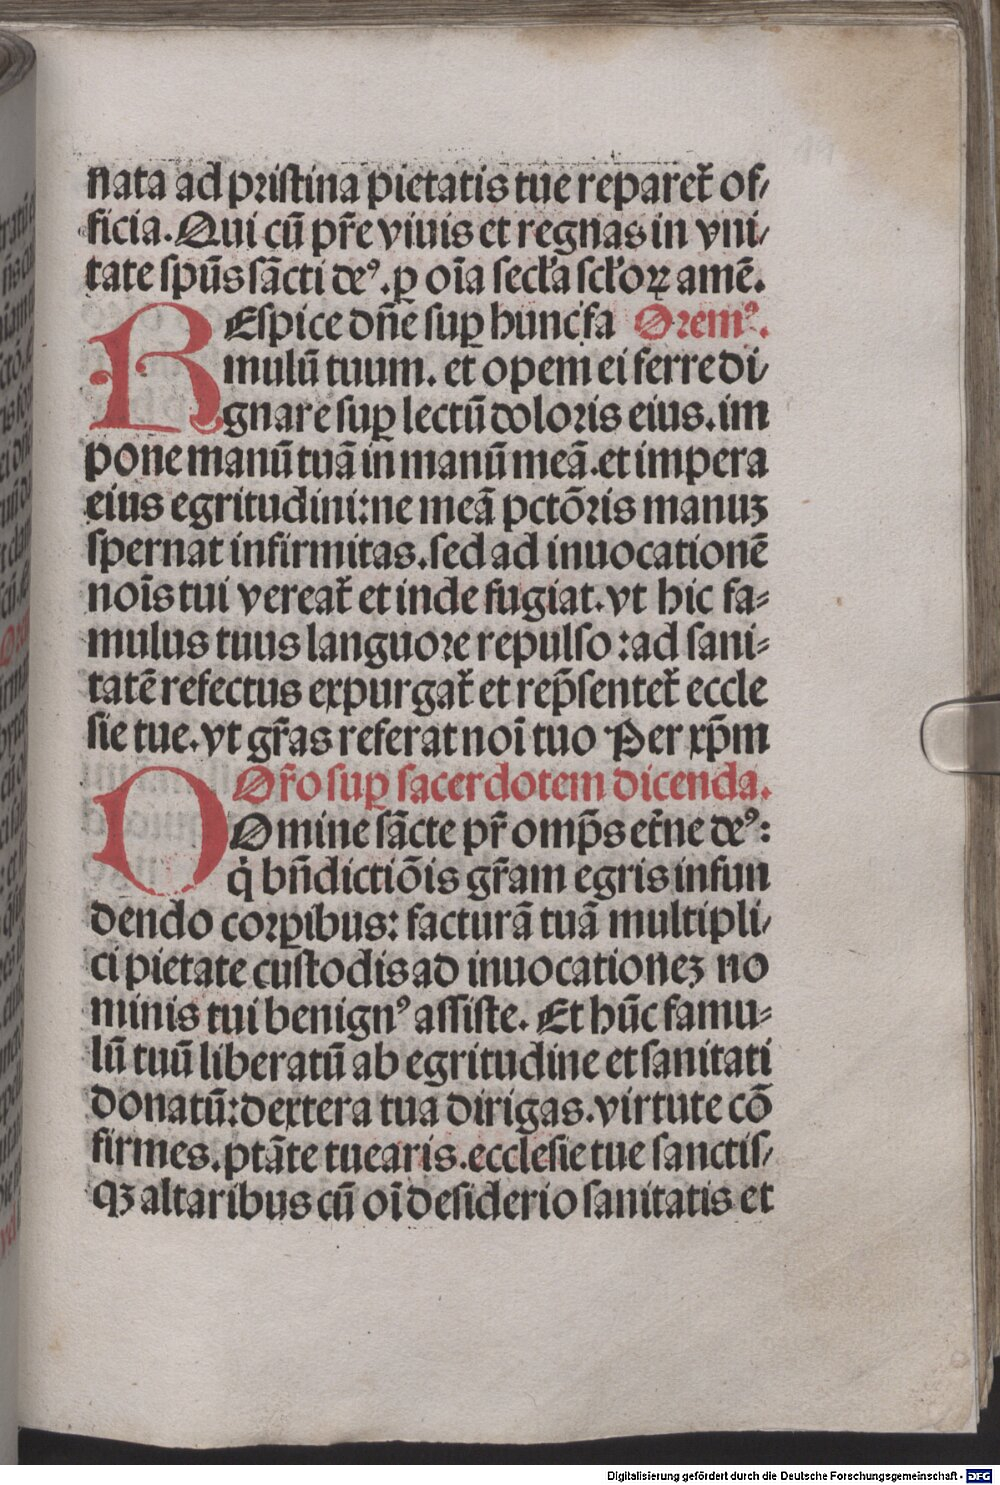 nata ad pristina pietatis tue reparet᷑ of⸗
ficia. Qui cū pr̄e viuis et regnas in vni⸗
tate spūs sācti deꝰ. ꝑ oīa secl̄a scl̄oꝝ amē.
REspice dn̄e suꝑ hunc fa Oremꝰ.
mulū tuum. et opem ei ferre di⸗
gnare suꝑ lectū doloris eius. im
pone manū tuā in manū meā. et impera
eius egritudini: ne meā pctōris manuꝫ
spernat infirmitas. sed ad inuocationē
noīs tui vereat᷑ et inde fugiat. vt hic fa⸗
mulus tuus languore repulso: ad sani⸗
tatē refectus expurgat᷑ et rep̄sentet᷑ eccle
sie tue. vt gr̄as referat noī tuo Per xp̄m
Or̄o suꝑ sacerdotem dicenda.
DOmine sācte pr̄ omp̄s et̄ne deꝰ:
q̇ bn̄dictiōis gr̄am egris infun
dendo corꝑibus: facturā tuā multipli⸗
ci pietate custodis ad inuocationeꝫ no
minis tui benignꝰ assiste. Et hūc famu⸗
lū tuū liberatū ab egritudine et sanitati
donatū: dextera tua dirigas. virtute cō
firmes. ptāte tuearis. ecclesie tue sanctis⸗
qꝫ altaribus cū oī desiderio sanitatis et
Digitalisierung gefördert durch die Deutsche Forschungsgemeinschaft - DFG